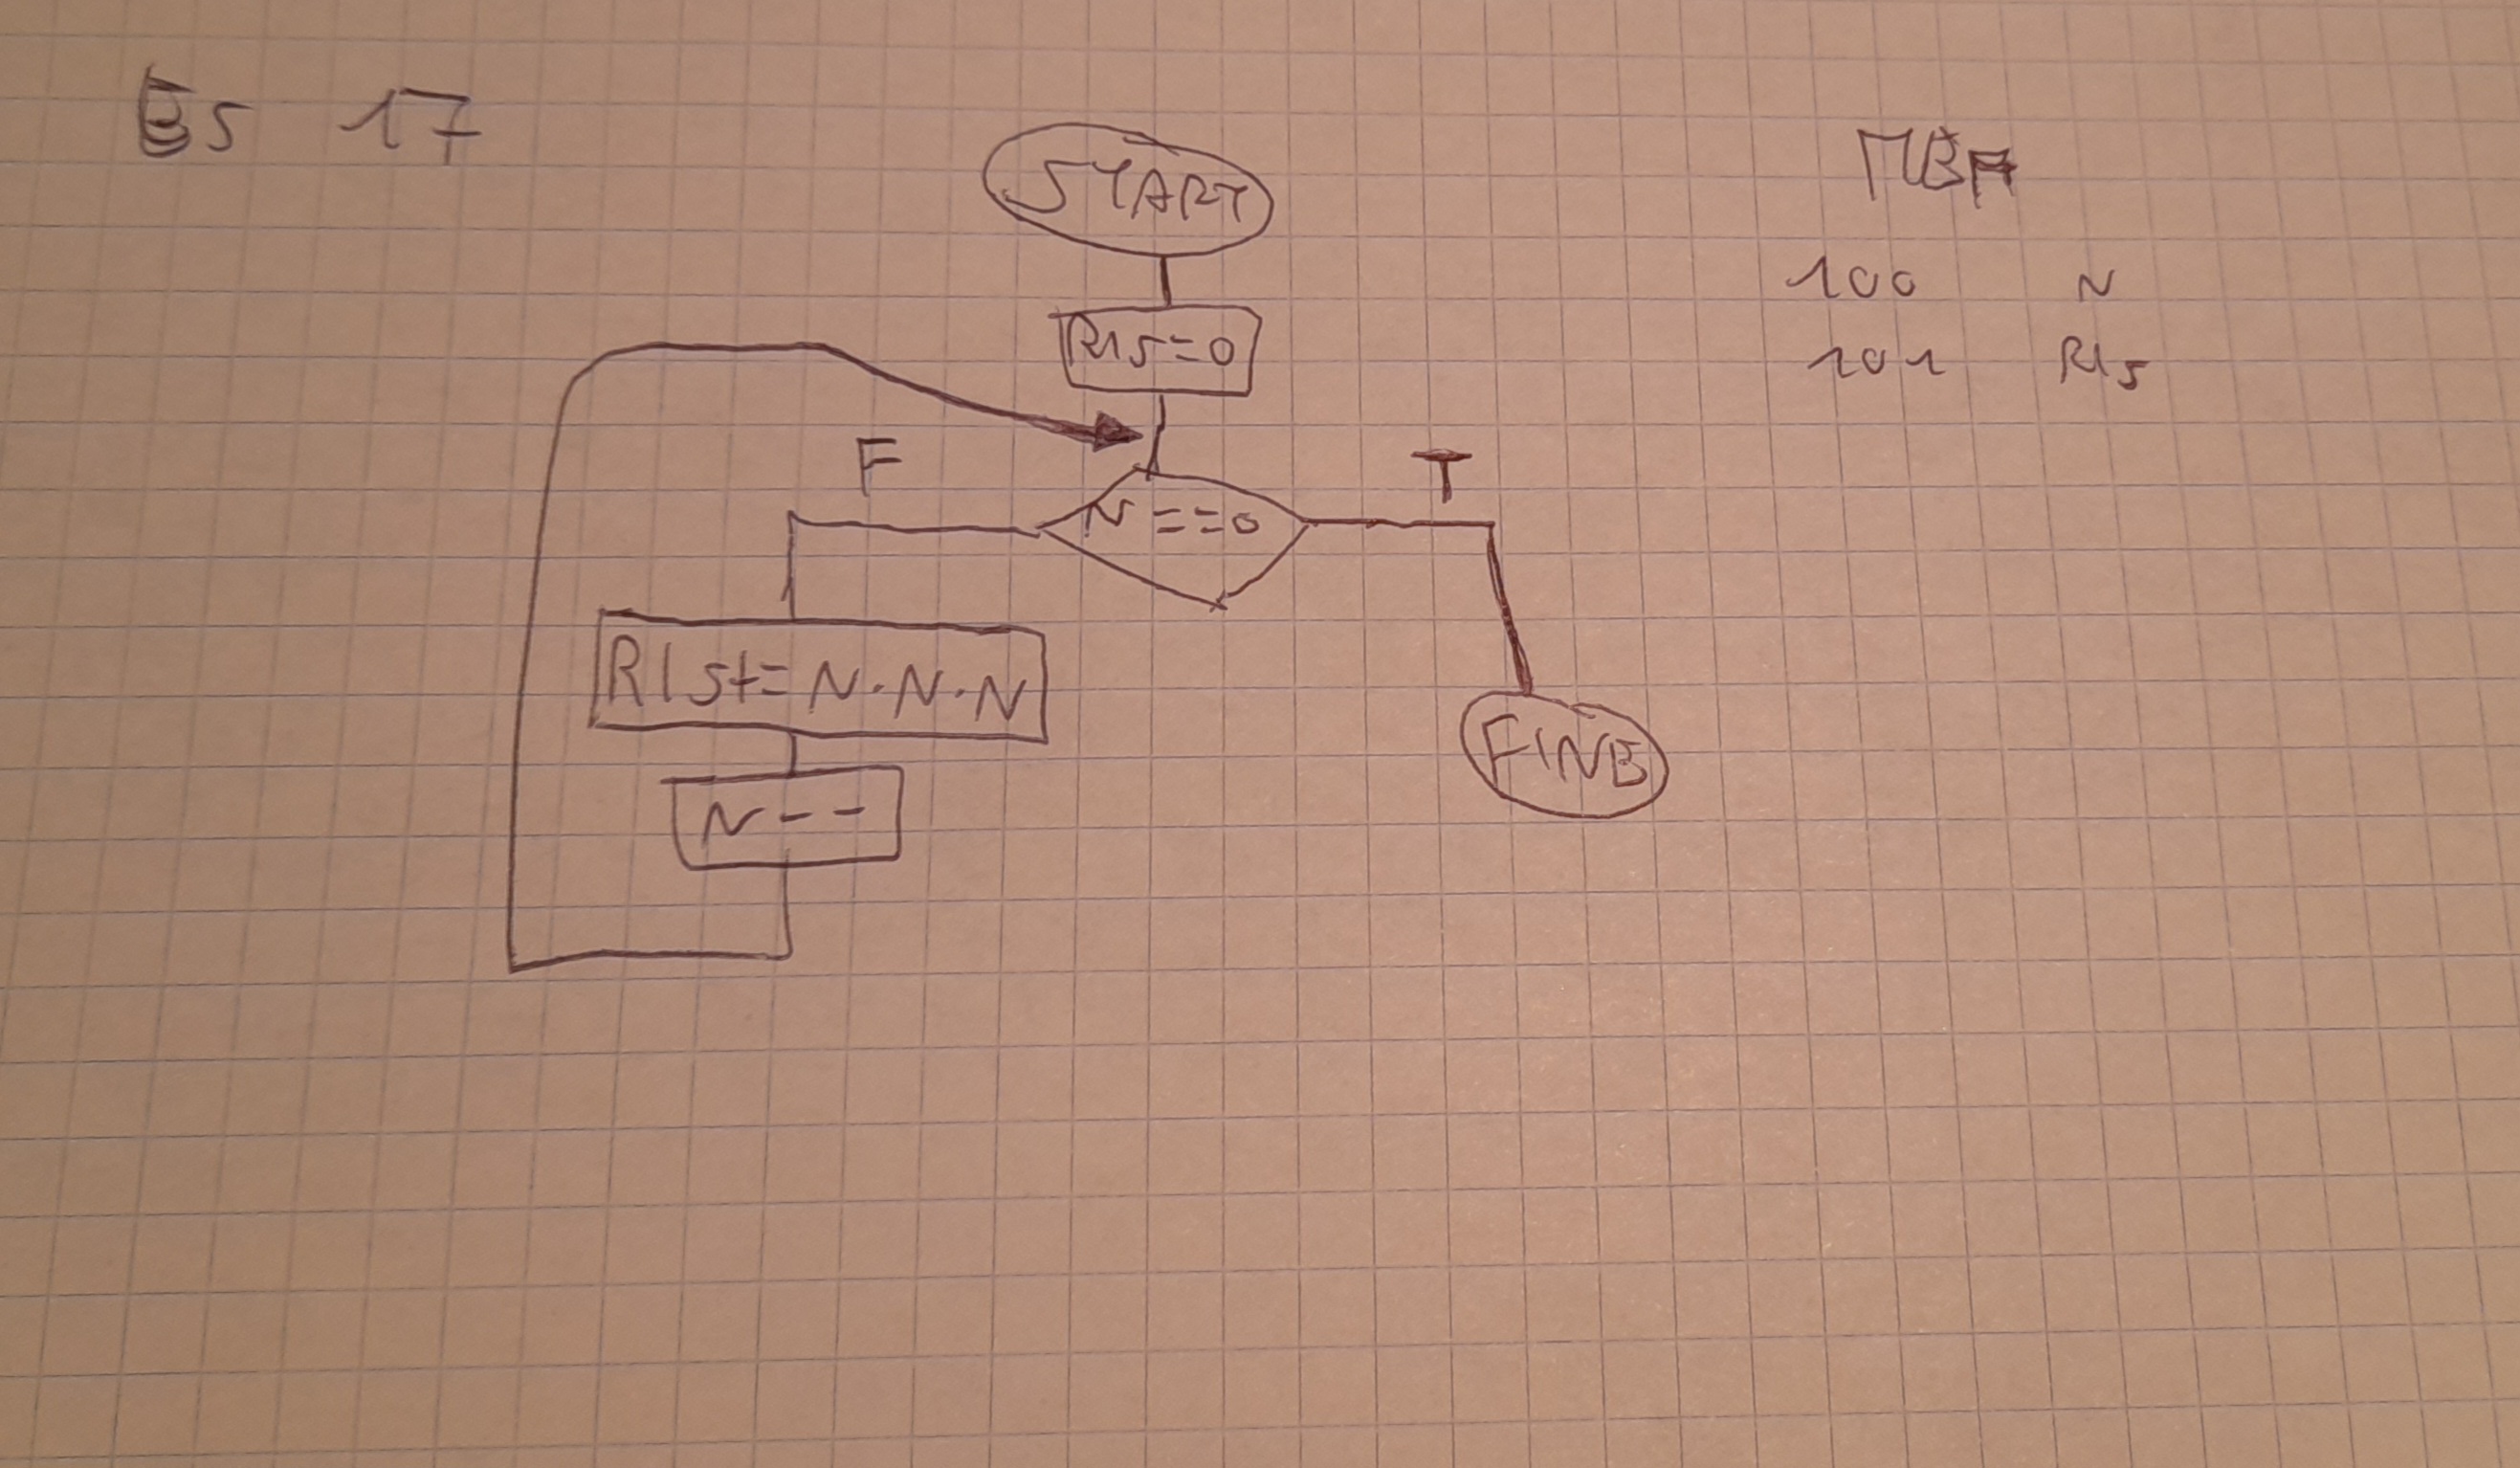 Es 17
START
RIS=0
F
N==0
T
RIS+=N·N·N
N--
FINE
100 N
101 RIS